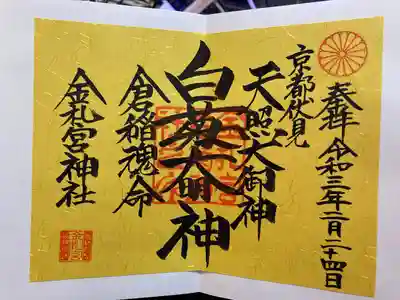 奉拝 令和三年二月二十四日
京都伏見
天照大御神
白菊大明神
倉稲魂命
金札宮神社